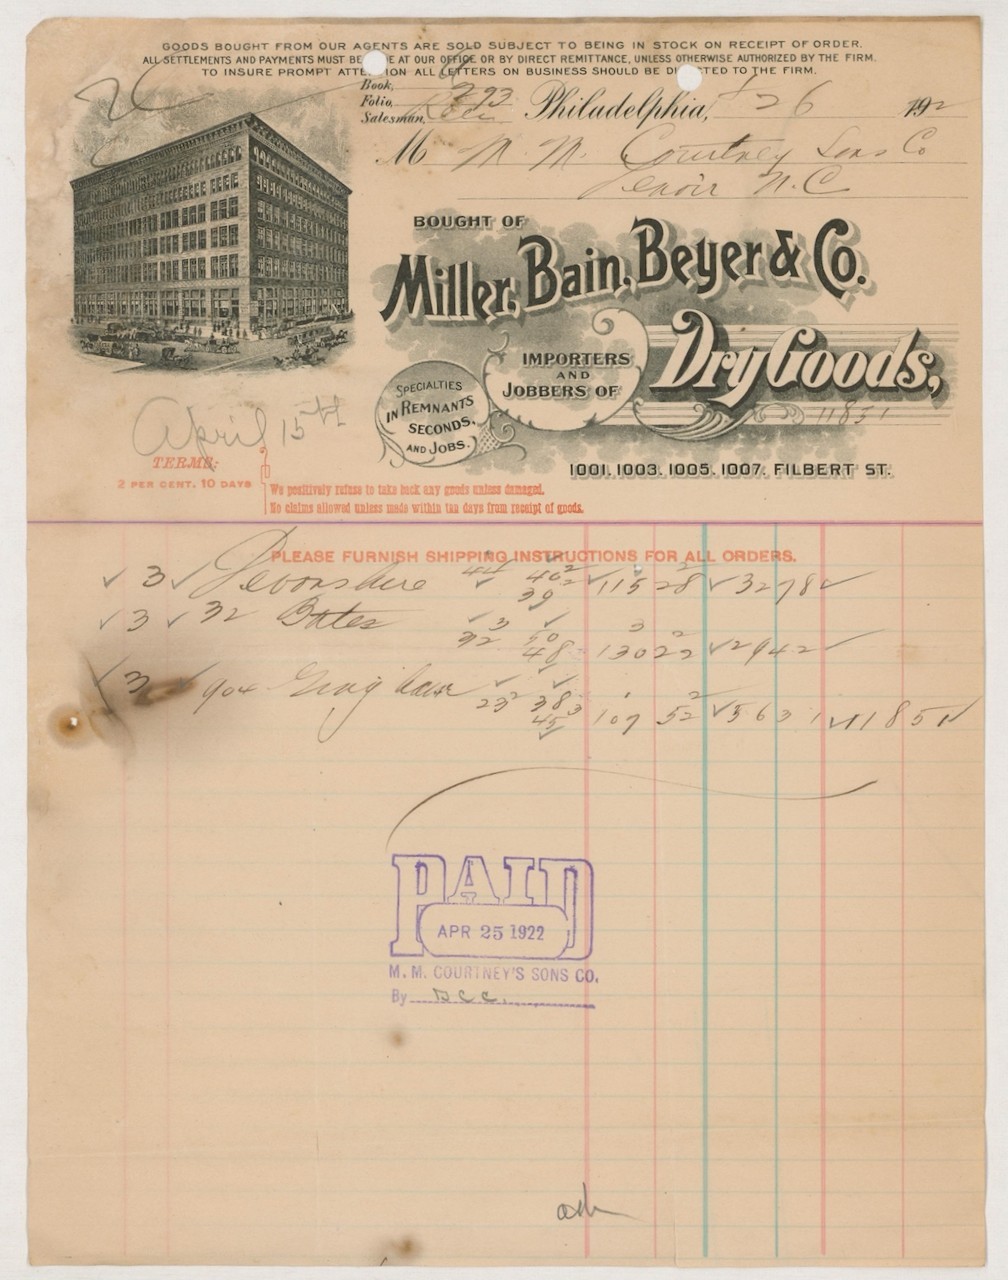 GOODS BOUGHT FROM OUR AGENTS ARE SOLD SUBJECT TO BEING IN STOCK ON RECEIPT OF ORDER.
ALL SETTLEMENTS AND PAYMENTS MUST BE MADE AT OUR OFFICE OR BY DIRECT REMITTANCE, UNLESS OTHERWISE AUTHORIZED BY THE FIRM.
TO INSURE PROMPT ATTENTION ALL LETTERS ON BUSINESS SHOULD BE DIRECTED TO THE FIRM.
Book,
Folio, 293
Salesman,
Philadelphia, 26 192
M M. M. Courtney Sons Co
Lenoir N.C
BOUGHT OF
Miller, Bain, Beyer & Co.
IMPORTERS AND JOBBERS OF
Dry Goods,
SPECIALTIES IN REMNANTS SECONDS, AND JOBS.
11851
1001. 1003. 1005. 1007. FILBERT ST.
April 15th
TERMS:
2 PER CENT. 10 DAYS
We positively refuse to take back any goods unless damaged.
No claims allowed unless made within ten days from receipt of goods.
PLEASE FURNISH SHIPPING INSTRUCTIONS FOR ALL ORDERS.
✓ 3 ✓ Devonshire 40² 39 ✓ 115 28² ✓ 3278 ✓
✓ 3 ✓ 32 Bates
32³ 50 48 130³ 22² ✓ 2942 ✓
✓ 3 904 Gingham 23² 383 45 107 52² ✓ 5631 ✓ 11851 ✓
PAID
APR 25 1922
M. M. COURTNEY'S SONS CO.
By D C C.